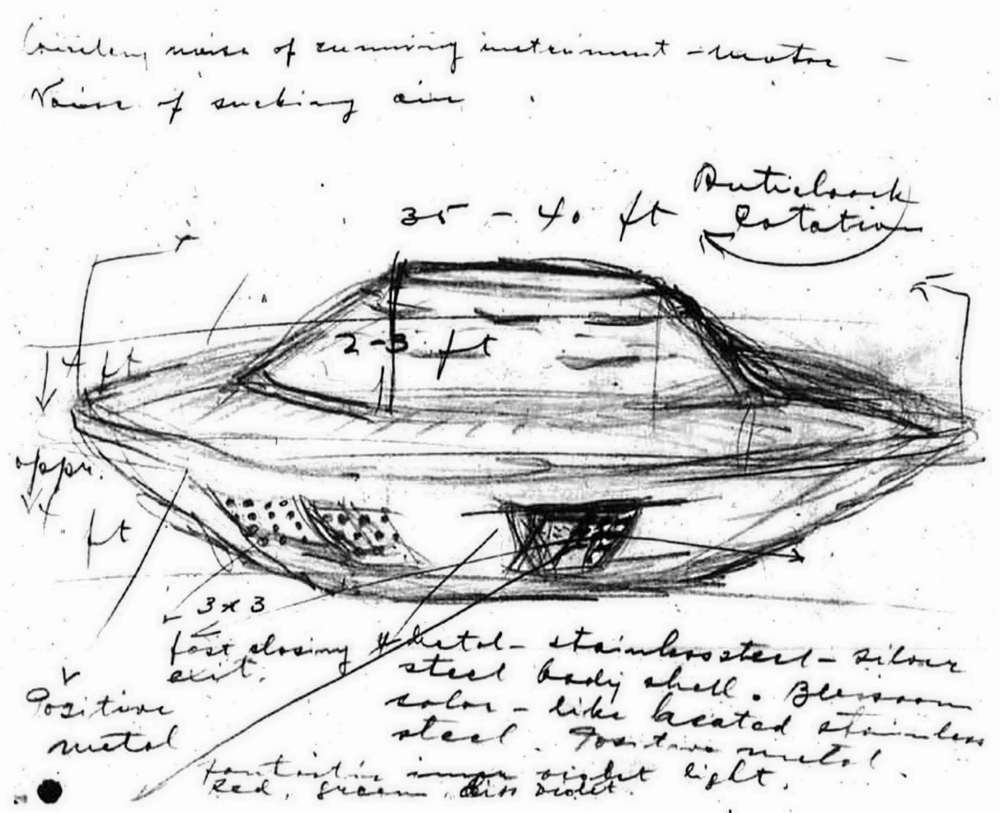 noise of running instrument - motor -
Noise of sucking air
Anticlock
Rotation
35 - 40 ft
2-3 ft
4 ft
appr.
4
ft
3 x 3
fast closing
exit.
Positive
metal
Metal - stainless steel - silver
steel body shell.
color - like heated stainless
steel. Positive metal.
light.
Red, green, violet.